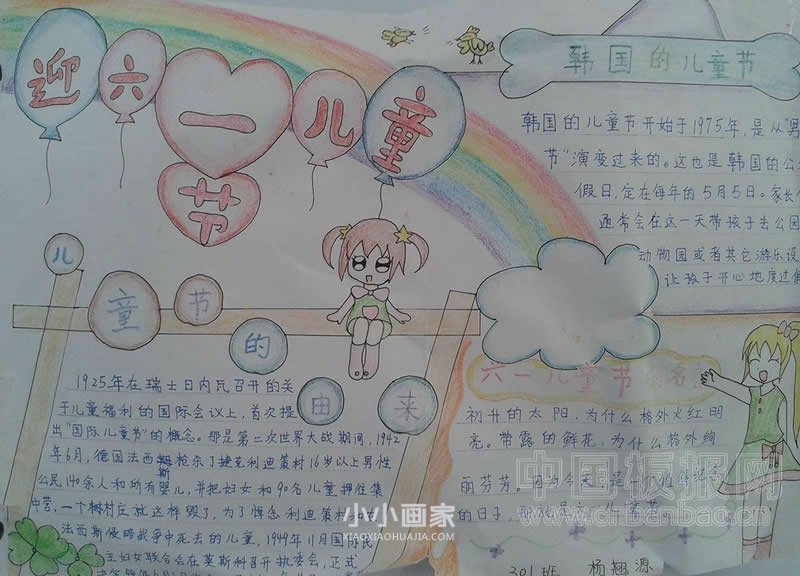 迎六一儿童节
韩国的儿童节
韩国的儿童节开始于1975年,是从"男
节"演变过来的。这也是韩国的公
假日,定在每年的5月5日。家长
通常会在这一天带孩子去公园
动物园或者其它游乐设
让孩子开心地度过假
儿童节的由来
1925年在瑞士日内瓦召开的关
于儿童福利的国际会议上,首次提
出"国际儿童节"的概念。那是第二次世界大战期间,1942
年6月,德国法西斯枪杀了捷克利迪策村16岁以上男性
公民140余人和所有婴儿,并把妇女和90名儿童押往集
中营,一个树村庄就这样毁了,为了悼念利迪策村和
法西斯侵略战争中死去的儿童,1949年11月国际民
主妇女联合会在莫斯科召开执委会,正式
六一儿童节的名
初升的太阳,为什么格外火红明
亮。带露的鲜花,为什么格外绚
丽芬芳。因为今天,是一个
的日子,
301班 杨翘源
中国板报网
www.chbanbao.cn
小小画家
XIAOXIAOHUAJIA.COM